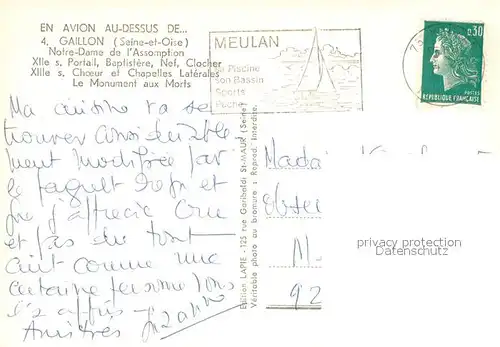 EN AVION AU-DESSUS DE...
4. GAILLON (Seine-et-Oise)
Notre-Dame de l'Assomption
XIIe s. Portail, Baptistère, Nef, Clocher
XIIIe s. Chœur et Chapelles Latérales
Le Monument aux Morts
MEULAN
sa Piscine
son Bassin
Sports
Pêche
0,30
POSTES
REPUBLIQUE FRANÇAISE
Ma cuisine va se
trouver
ment modifiée par
le paquet et
que j'apprécie cru
et pas du tout
cuit comme une
certaine personne
Amitiés
Edition LAPIE - 125 rue Garibaldi St-MAUR (Seine)
Véritable photo au bromure : Reprod. Interdite.
Mada
M.
92
privacy protection
Datenschutz